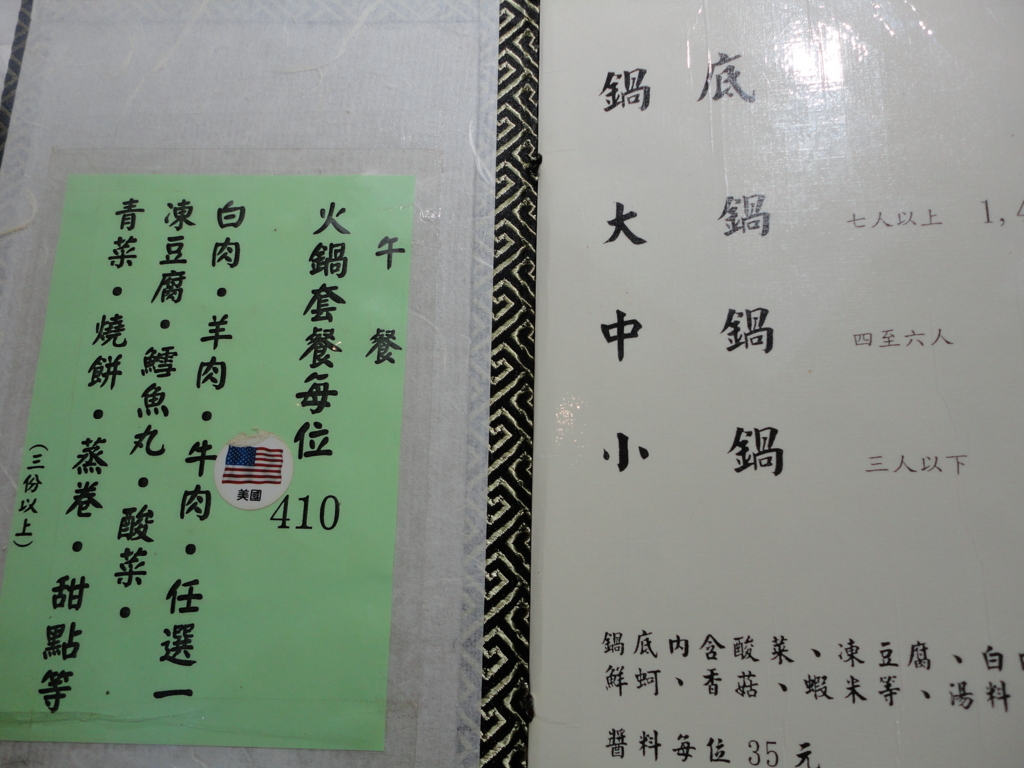 午餐
火鍋套餐每位
410
白肉・羊肉・牛肉・任選一
美國
凍豆腐・鱈魚丸・酸菜・
青菜・燒餅・蒸卷・甜點等
（三份以上）
鍋底
大鍋 七人以上 1,4
中鍋 四至六人
小鍋 三人以下
鍋底內含酸菜、凍豆腐、白
鮮蚵、香菇、蝦米等、湯料
醬料每位 35 元